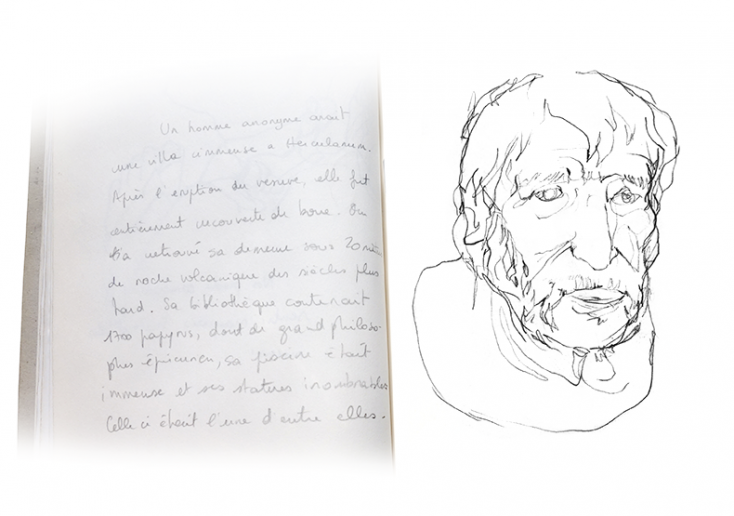 Un homme anonyme avait
une villa immense a Herculanum.
Après l'éruption du vesuve, elle fut
entièrement recouverte de boue. On
a retrouvé sa demeure sous 20 mètres
de roche volcanique des siècles plus
tard. Sa bibliothèque contenait
1700 papyrus, dont de grand philoso-
phes épicurien, sa piscine était
immense et ses statues inombrables.
Celle ci était l'une d'entre elles.